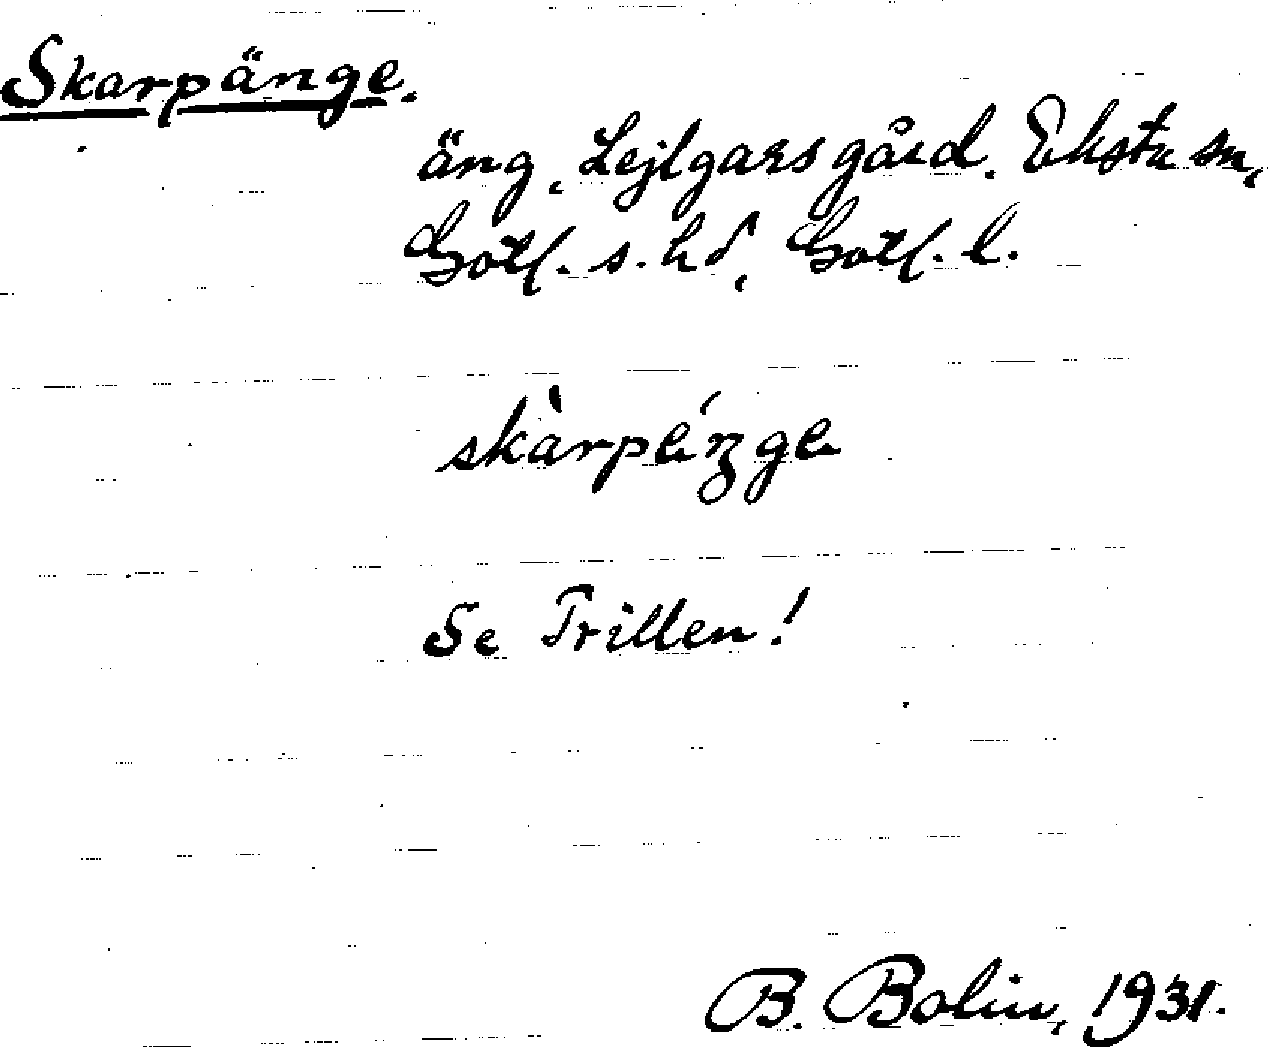 Skarpänge.
äng, Lejlgarsgård. Eksta sn,
Gotl. s. hd, Gotl. l.
skàrpéŋge
Se Trillen!
B. Bolin, 1931.